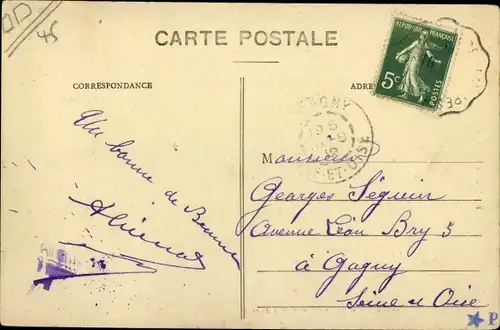 45
CARTE POSTALE
CORRESPONDANCE
RÉPUBLIQUE FRANÇAISE
5c
POSTES
GAGNY
ET-OISE
Un bonne de
Monsieur
Georges Séguin
Avenue Léon Bry 3
à Gagny
Seine et Oise